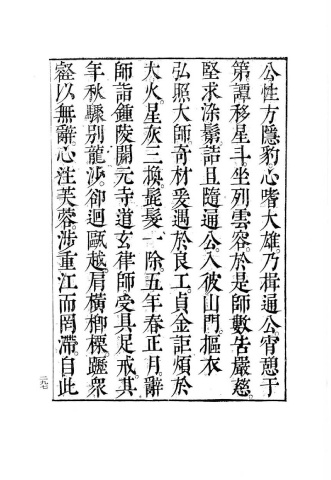 公性方隱豹心嗜大雄乃揖通公宵憩于
第譚移星斗。坐列雲容。於是師數告嚴慈。
堅求染鬄。詰且隨通公。入彼山門。摳衣
弘照大師。奇材爰遇於良工。貞金詎煩於
大火。星灰三換。髭髮一除。五年春正月。辭
師詣鍾陵開元寺道玄律師受具足戒。其
年秋驟別龍沙。卻迴甌越。肩橫楖㮚。䟐衆
壑以無辭。心注芙蓉。涉重江而罔滯。自此
二九七